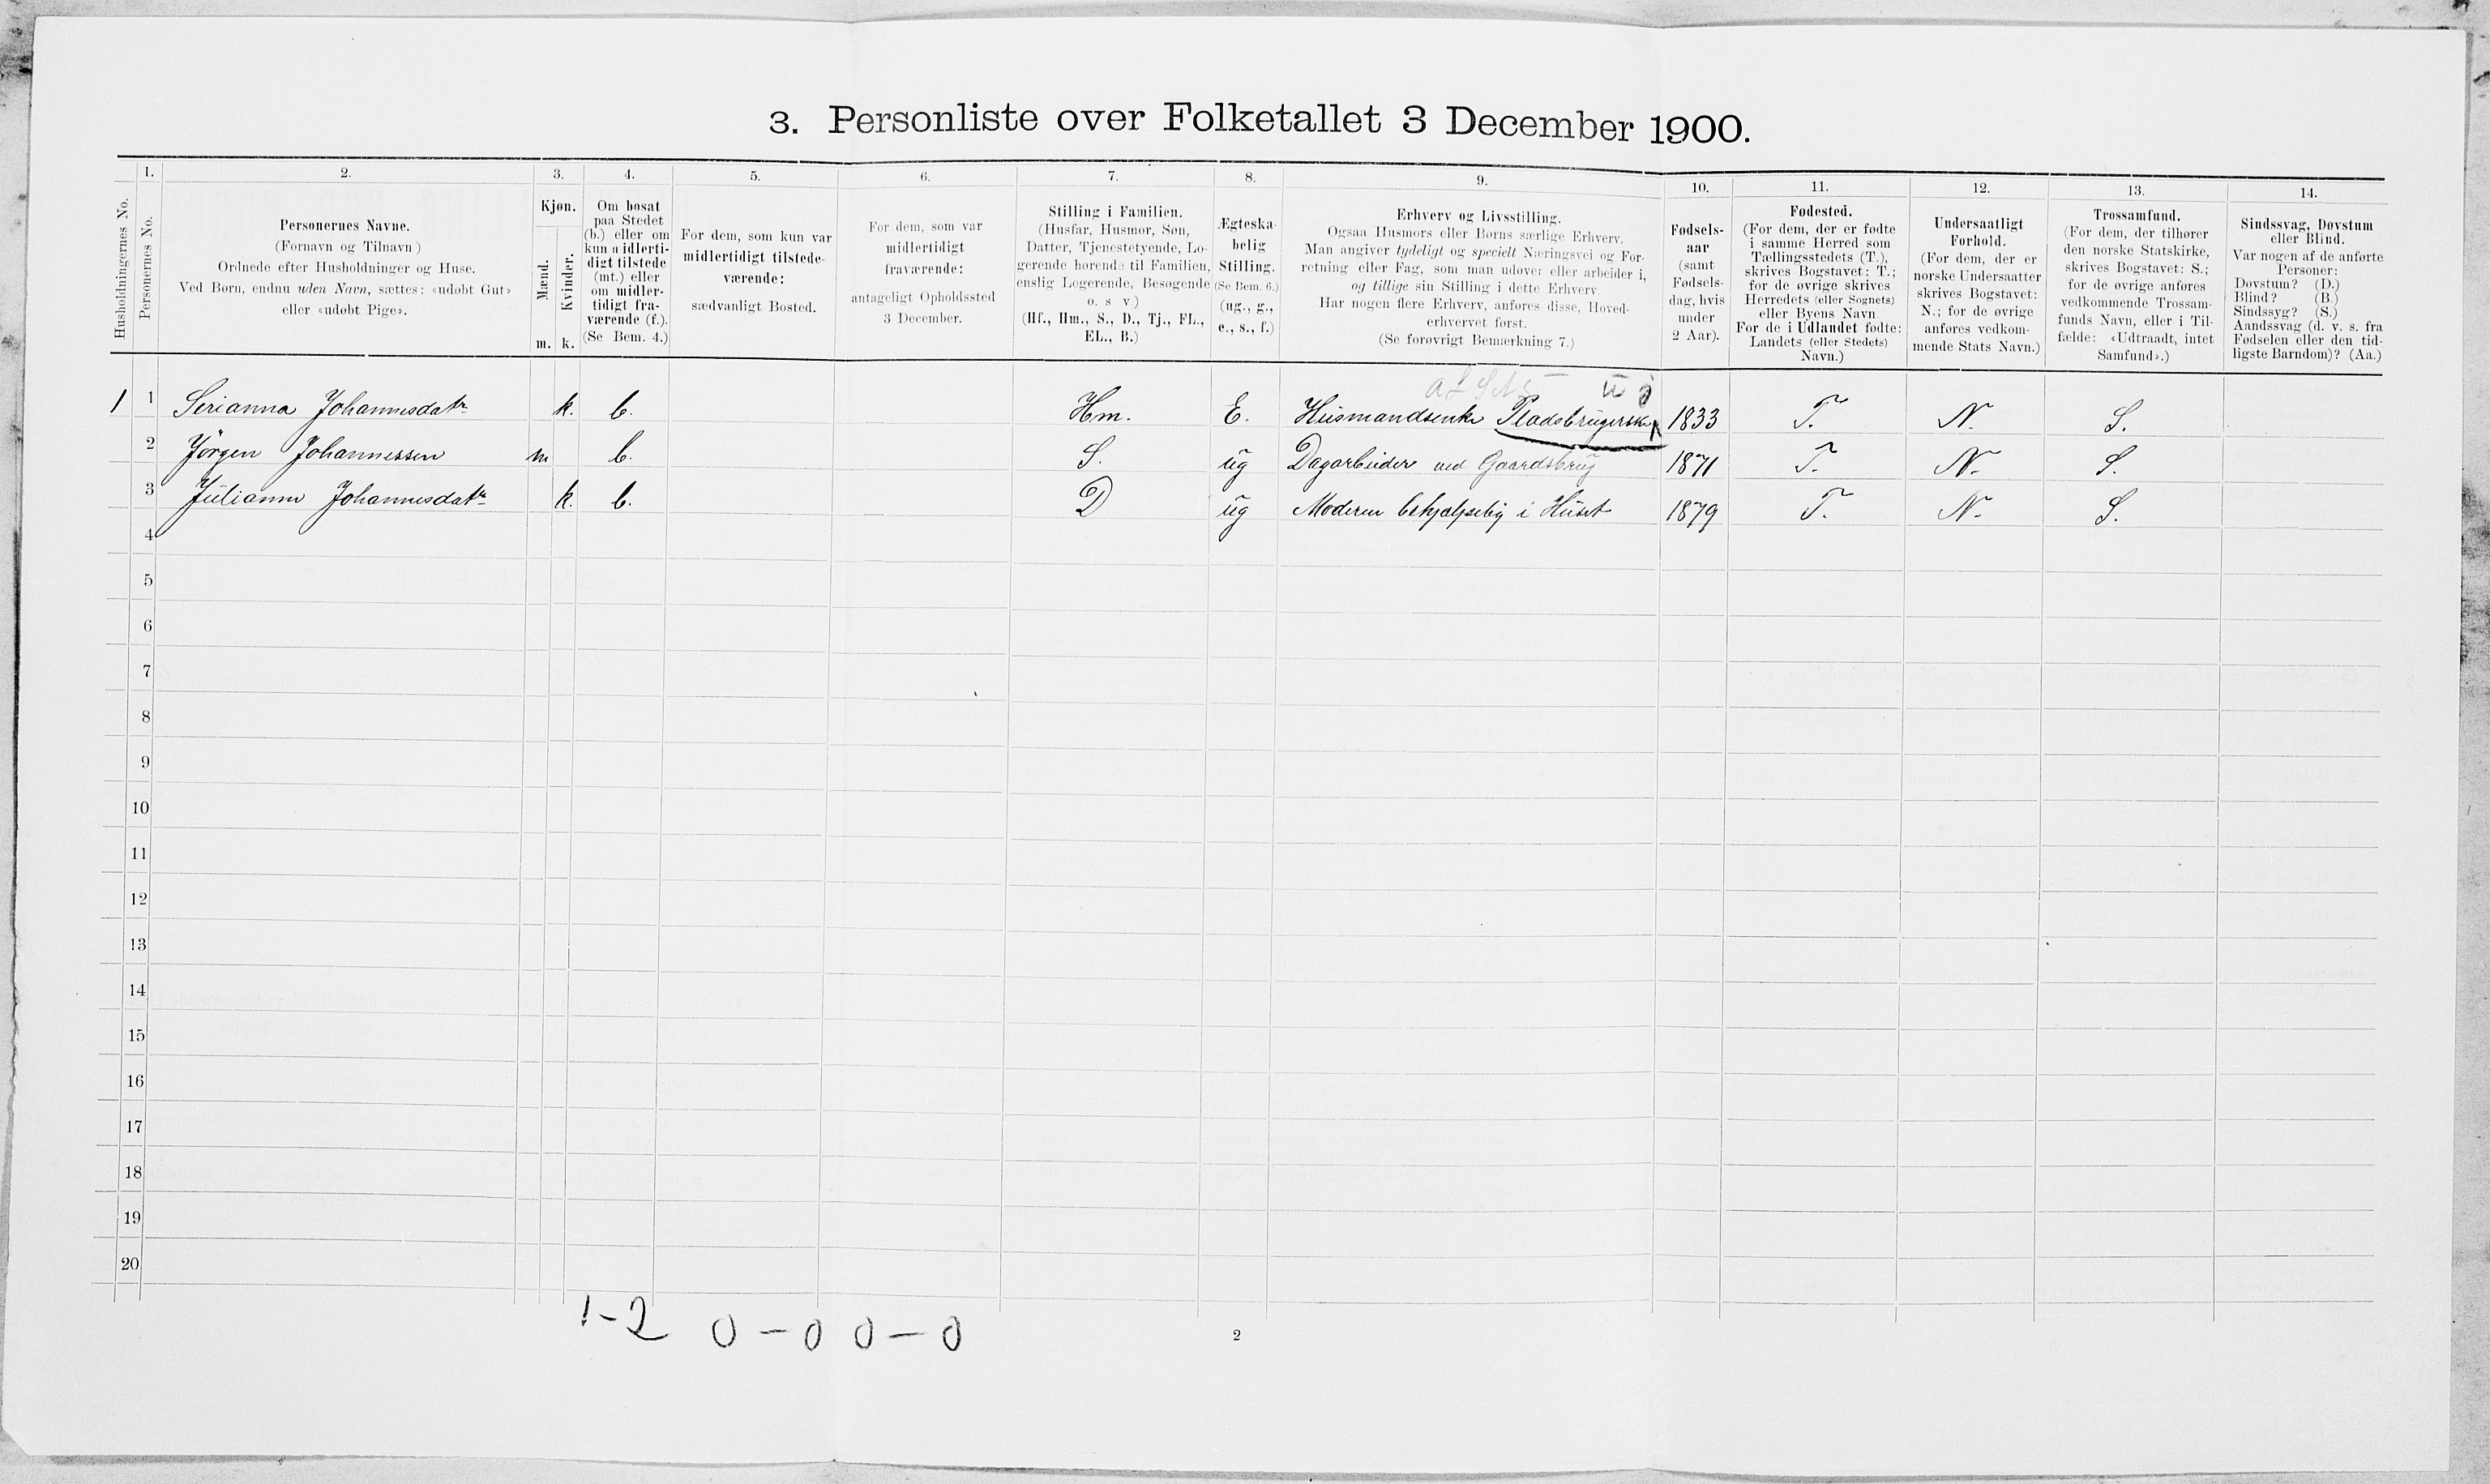 3. Personliste over Folketallet 3 December 1900.
Husholdningernes No.
1.
Personernes No.
2.
Personernes Navne.
(Fornavn og Tilnavn)
Ordnede efter Husholdninger og Huse.
Ved Børn, endnu uden Navn, sættes: «udøbt Gut»
eller «udøbt Pige».
3.
Kjøn.
Mænd.
Kvinder.
m. k.
4.
Om bosat
paa Stedet
(b.) eller om
kun midlerti-
digt tilstede
(mt.) eller
om midler-
tidigt fra-
værende (f.).
(Se Bem. 4.)
5.
For dem, som kun var
midlertidigt tilstede-
værende:
sædvanligt Bosted.
6.
For dem, som var
midlertidigt
fraværende:
antageligt Opholdssted
3 December.
7.
Stilling i Familien.
(Husfar, Husmor, Søn,
Datter, Tjenestetyende, Lo-
gerende hørende til Familien,
enslig Logerende, Besøgende
o. s v.)
(Hf., Hm., S., D., Tj., FL.,
EL., B.)
8.
Ægteska-
belig
Stilling.
(Se Bem. 6.)
(ug., g.,
e., s., f.)
9.
Erhverv og Livsstilling.
Ogsaa Husmors eller Børns særlige Erhverv.
Man angiver tydeligt og specielt Næringsvei og For-
retning eller Fag, som man udøver eller arbeider i,
og tillige sin Stilling i dette Erhverv.
Har nogen flere Erhverv, anføres disse, Hoved-
erhvervet først.
(Se forøvrigt Bemærkning 7.)
10.
Fødsels-
aar
(samt
Fødsels-
dag, hvis
under
2 Aar).
11.
Fødested.
(For dem, der er fødte
i samme Herred som
Tællingsstedets (T.),
skrives Bogstavet: T.;
for de øvrige skrives
Herredets (eller Sognets)
eller Byens Navn.
For de i Udlandet fødte:
Landets (eller Stedets)
Navn.)
12.
Undersaatligt
Forhold.
(For dem, der er
norske Undersaatter
skrives Bogstavet:
N.; for de øvrige
anføres vedkom-
mende Stats Navn.)
13.
Trossamfund.
(For dem, der tilhører
den norske Statskirke,
skrives Bogstavet: S.;
for de øvrige anføres
vedkommende Trossam-
funds Navn, eller i Til-
fælde: «Udtraadt, intet
Samfund».)
14.
Sindssvag, Døvstum
eller Blind.
Var nogen af de anførte
Personer:
Døvstum? (D.)
Blind? (B.)
Sindssyg? (S.)
Aandssvag (d. v. s. fra
Fødselen eller den tid-
ligste Barndom)? (Aa.)
1 1 Serianna Johannesdatr k. b. Hm. E. Husmandsenke Pladsbrugerske 1833 T. N. S.
2 Jörgen Johannessen m b. S. ug Dagarbeider ved Gaardsbrug 1871 T. N. S.
3 Julianne Johannesdatr k. b. D ug Moderen behjælpelig i Huset 1879 T. N. S.
4
5
6
7
8
9
10
11
12
13
14
15
16
17
18
19
20
1-2 0-0 0-0
2